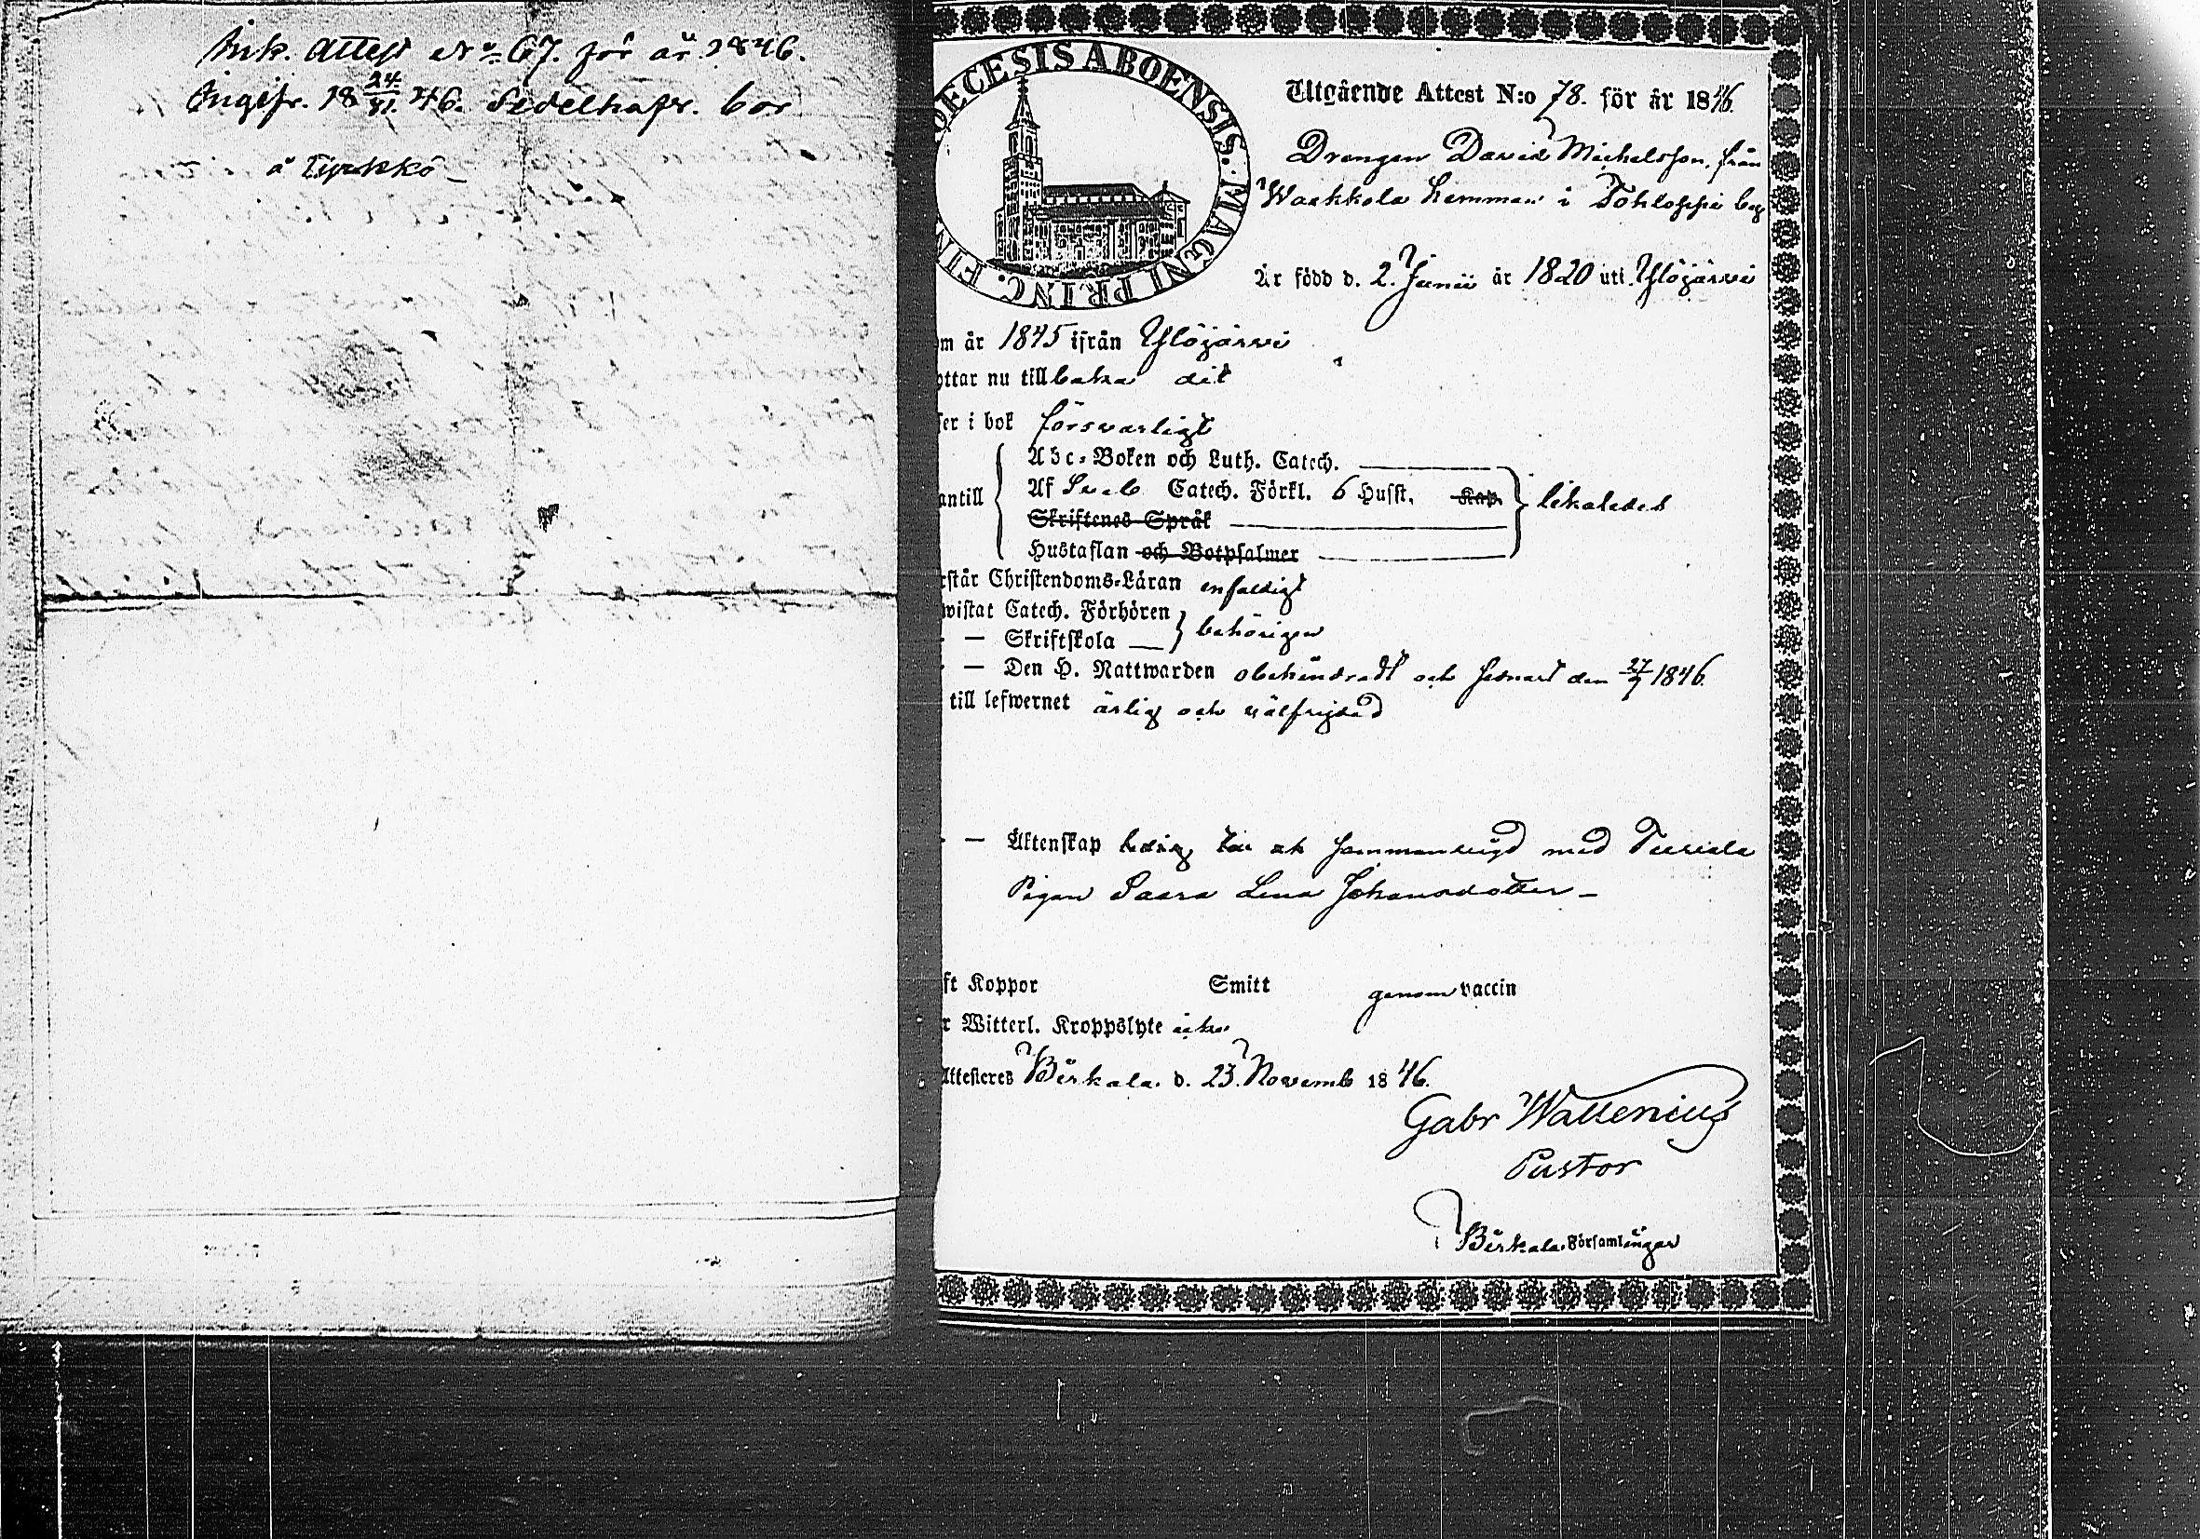 Ink. Attest No 67. för år 1846.
Ingifv. 18 24/11 46. Sedelhafv. bor
å Tyrkkö
DECESIS ABOENSIS. MAGNI PRINC. FIN
Utgående Attest N:o 78. för år 1846.
Drengen David Michelsson, från
Waakkola hemman i Tohloppi by
Är född d. 2. Junii år 1820 uti Ylöjärvi
m år 1845 ifrån Ylöjärvi
ottar nu tillbaka dit
ser i bok försvarligt
Abc-Boken och Luth. Catech.
antill Af Catech. Förkl. 6 Husst. Kap. likaledes
Skriftenes Språk
Hustaflan och Botpsalmer
rstår Christendoms-Läran enfaldigt
wistat Catech. Förhören
— Skriftskola — behörigen
— Den H. Nattwarden obehindradt och senast den 27/9 1846.
till lefwernet ärlig och välfrejdad
— Äktenskap ledig att sammanvigd med
Pigan Saara Lena Johansdotter –
ft Koppor Smitt genom vaccin
r Witterl. Kroppslyte icke
Attesteres Birkala. d. 23. Novemb 1846.
Gabr Wallenius
Pastor
i Birkala Församlingar